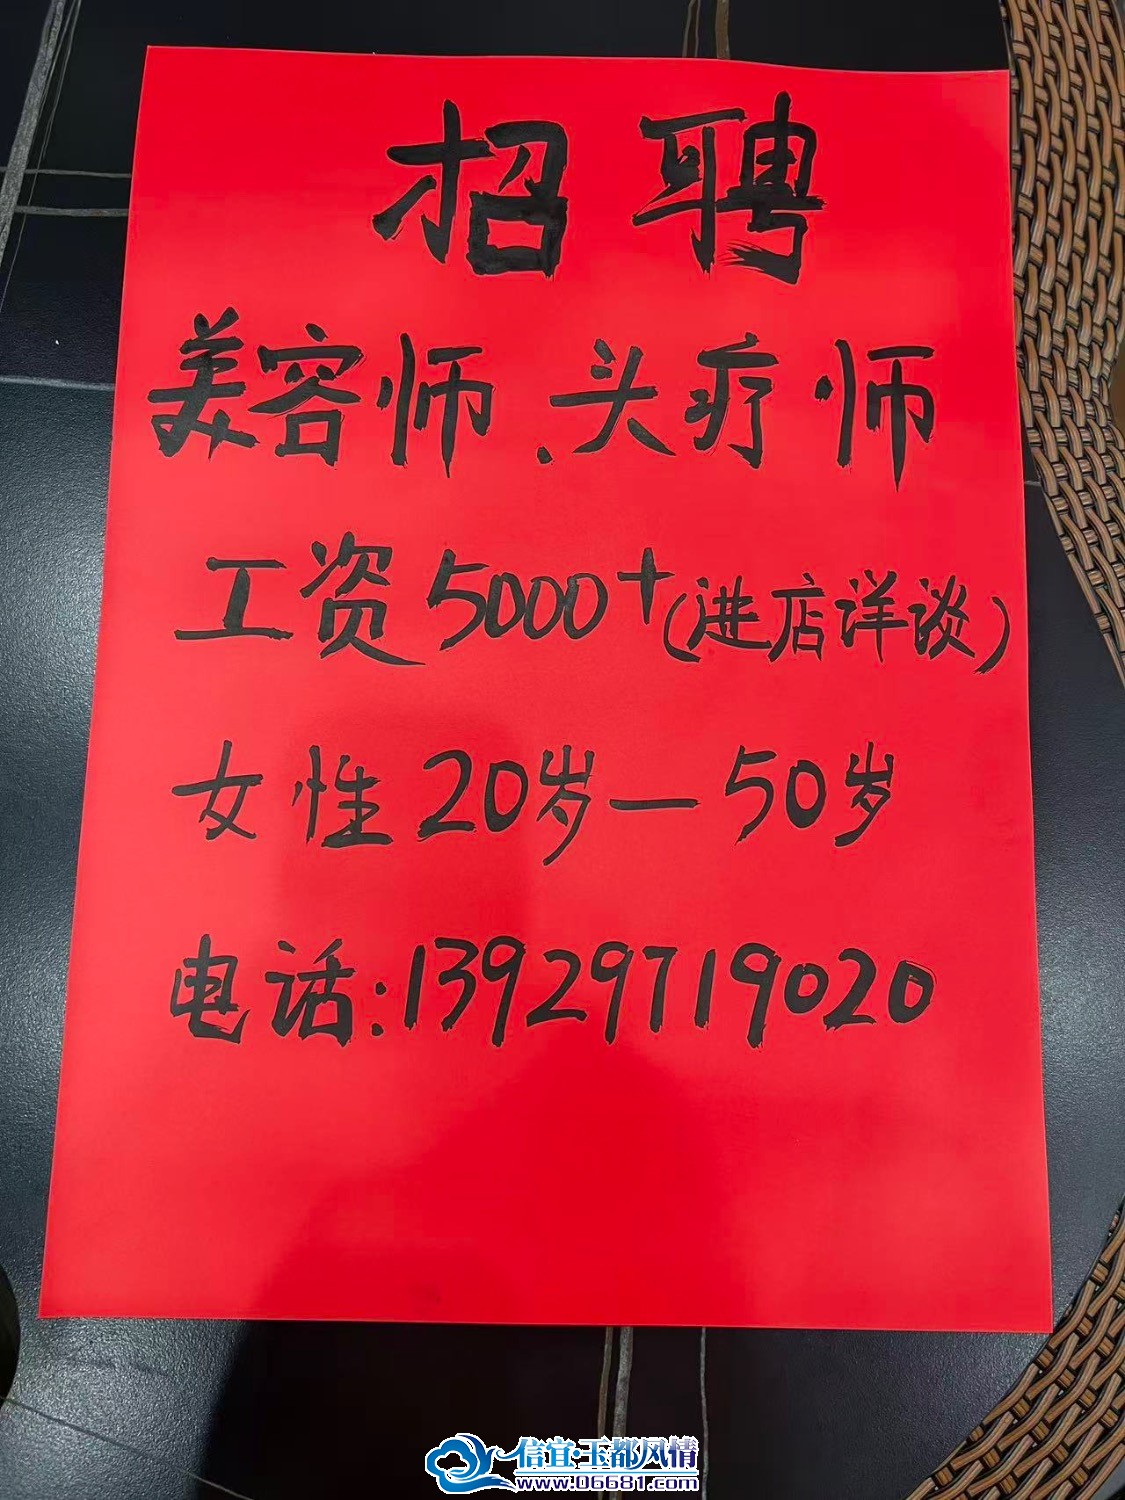 招聘
美容师、头疗师
工资5000+(进店详谈)
女性20岁—50岁
电话:13929719020
信宜·玉都风情
www.06681.com